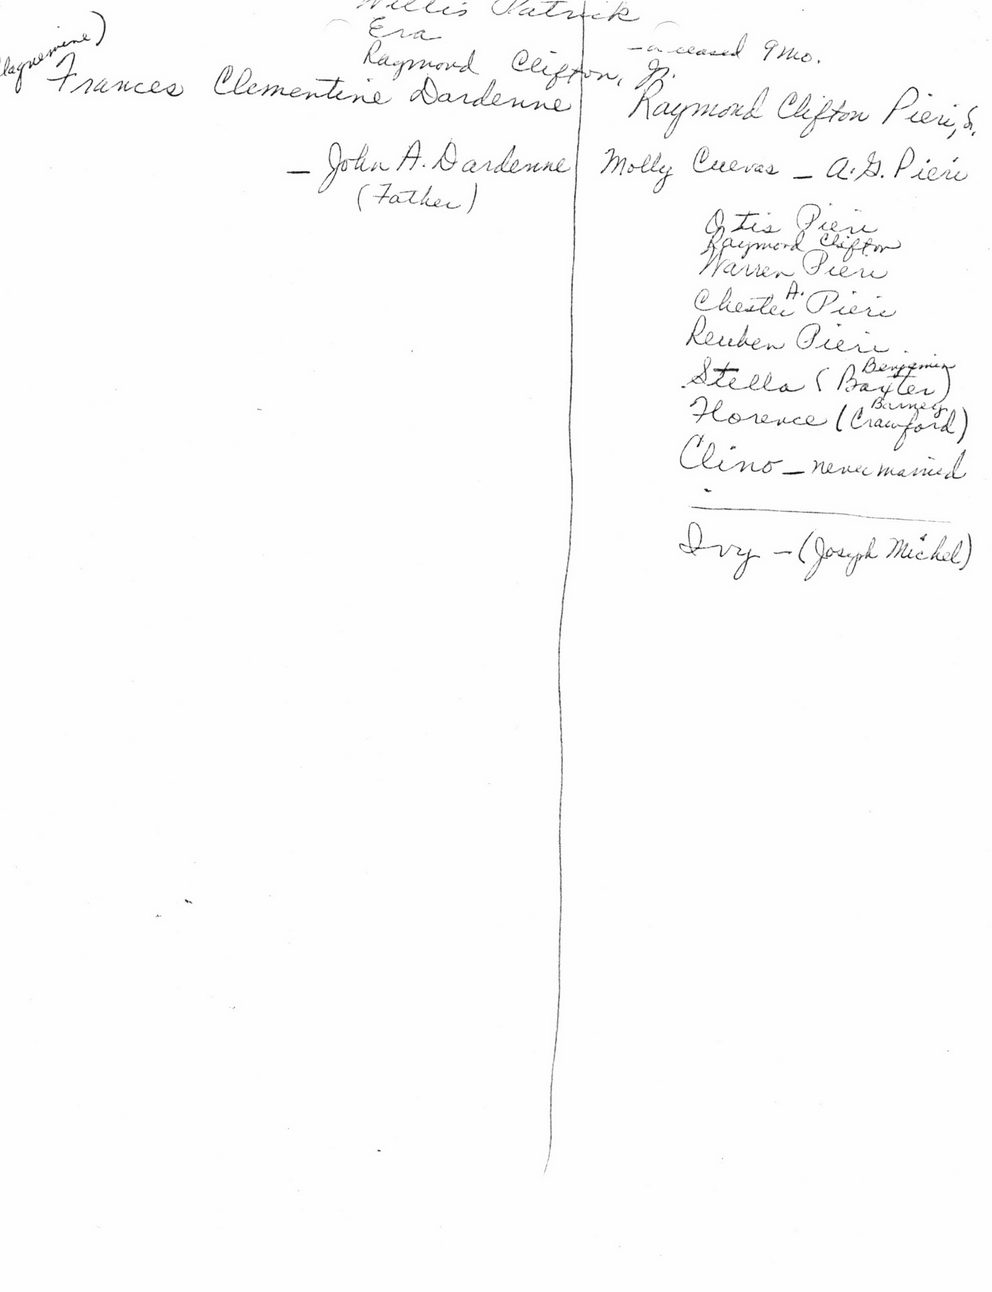 Willis Patrick
Era
Raymond Clifton, Jr. - deceased 9 mo.
Frances Clementine Dardenne
Raymond Clifton Pieri, Sr.
- John A. Dardenne
(Father)
Molly Cuevas - A. G. Pieri
Otis Pieri
Raymond Clifton
Warren Pieri
Chester A. Pieri
Reuben Pieri.
Stella (Benjamin Baxter)
Florence (Barney Crawford)
Clino - never married
Ivy - (Joseph Michel)